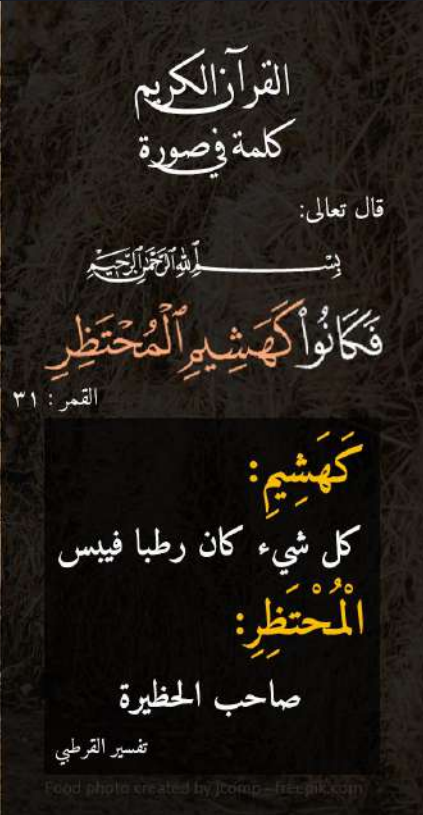 القرآن الكريم
كلمة في صورة
قال تعالى:
بِسْمِ ٱللَّهِ ٱلرَّحْمَٰنِ ٱلرَّحِيمِ
فَكَانُوا۟ كَهَشِيمِ ٱلْمُحْتَظِرِ
القمر : ٣١
كَهَشِيمِ:
كل شيء كان رطبا فيبس
الْمُحْتَظِرِ:
صاحب الحظيرة
تفسير القرطبي
Food photo created by jcomp - freepik.com